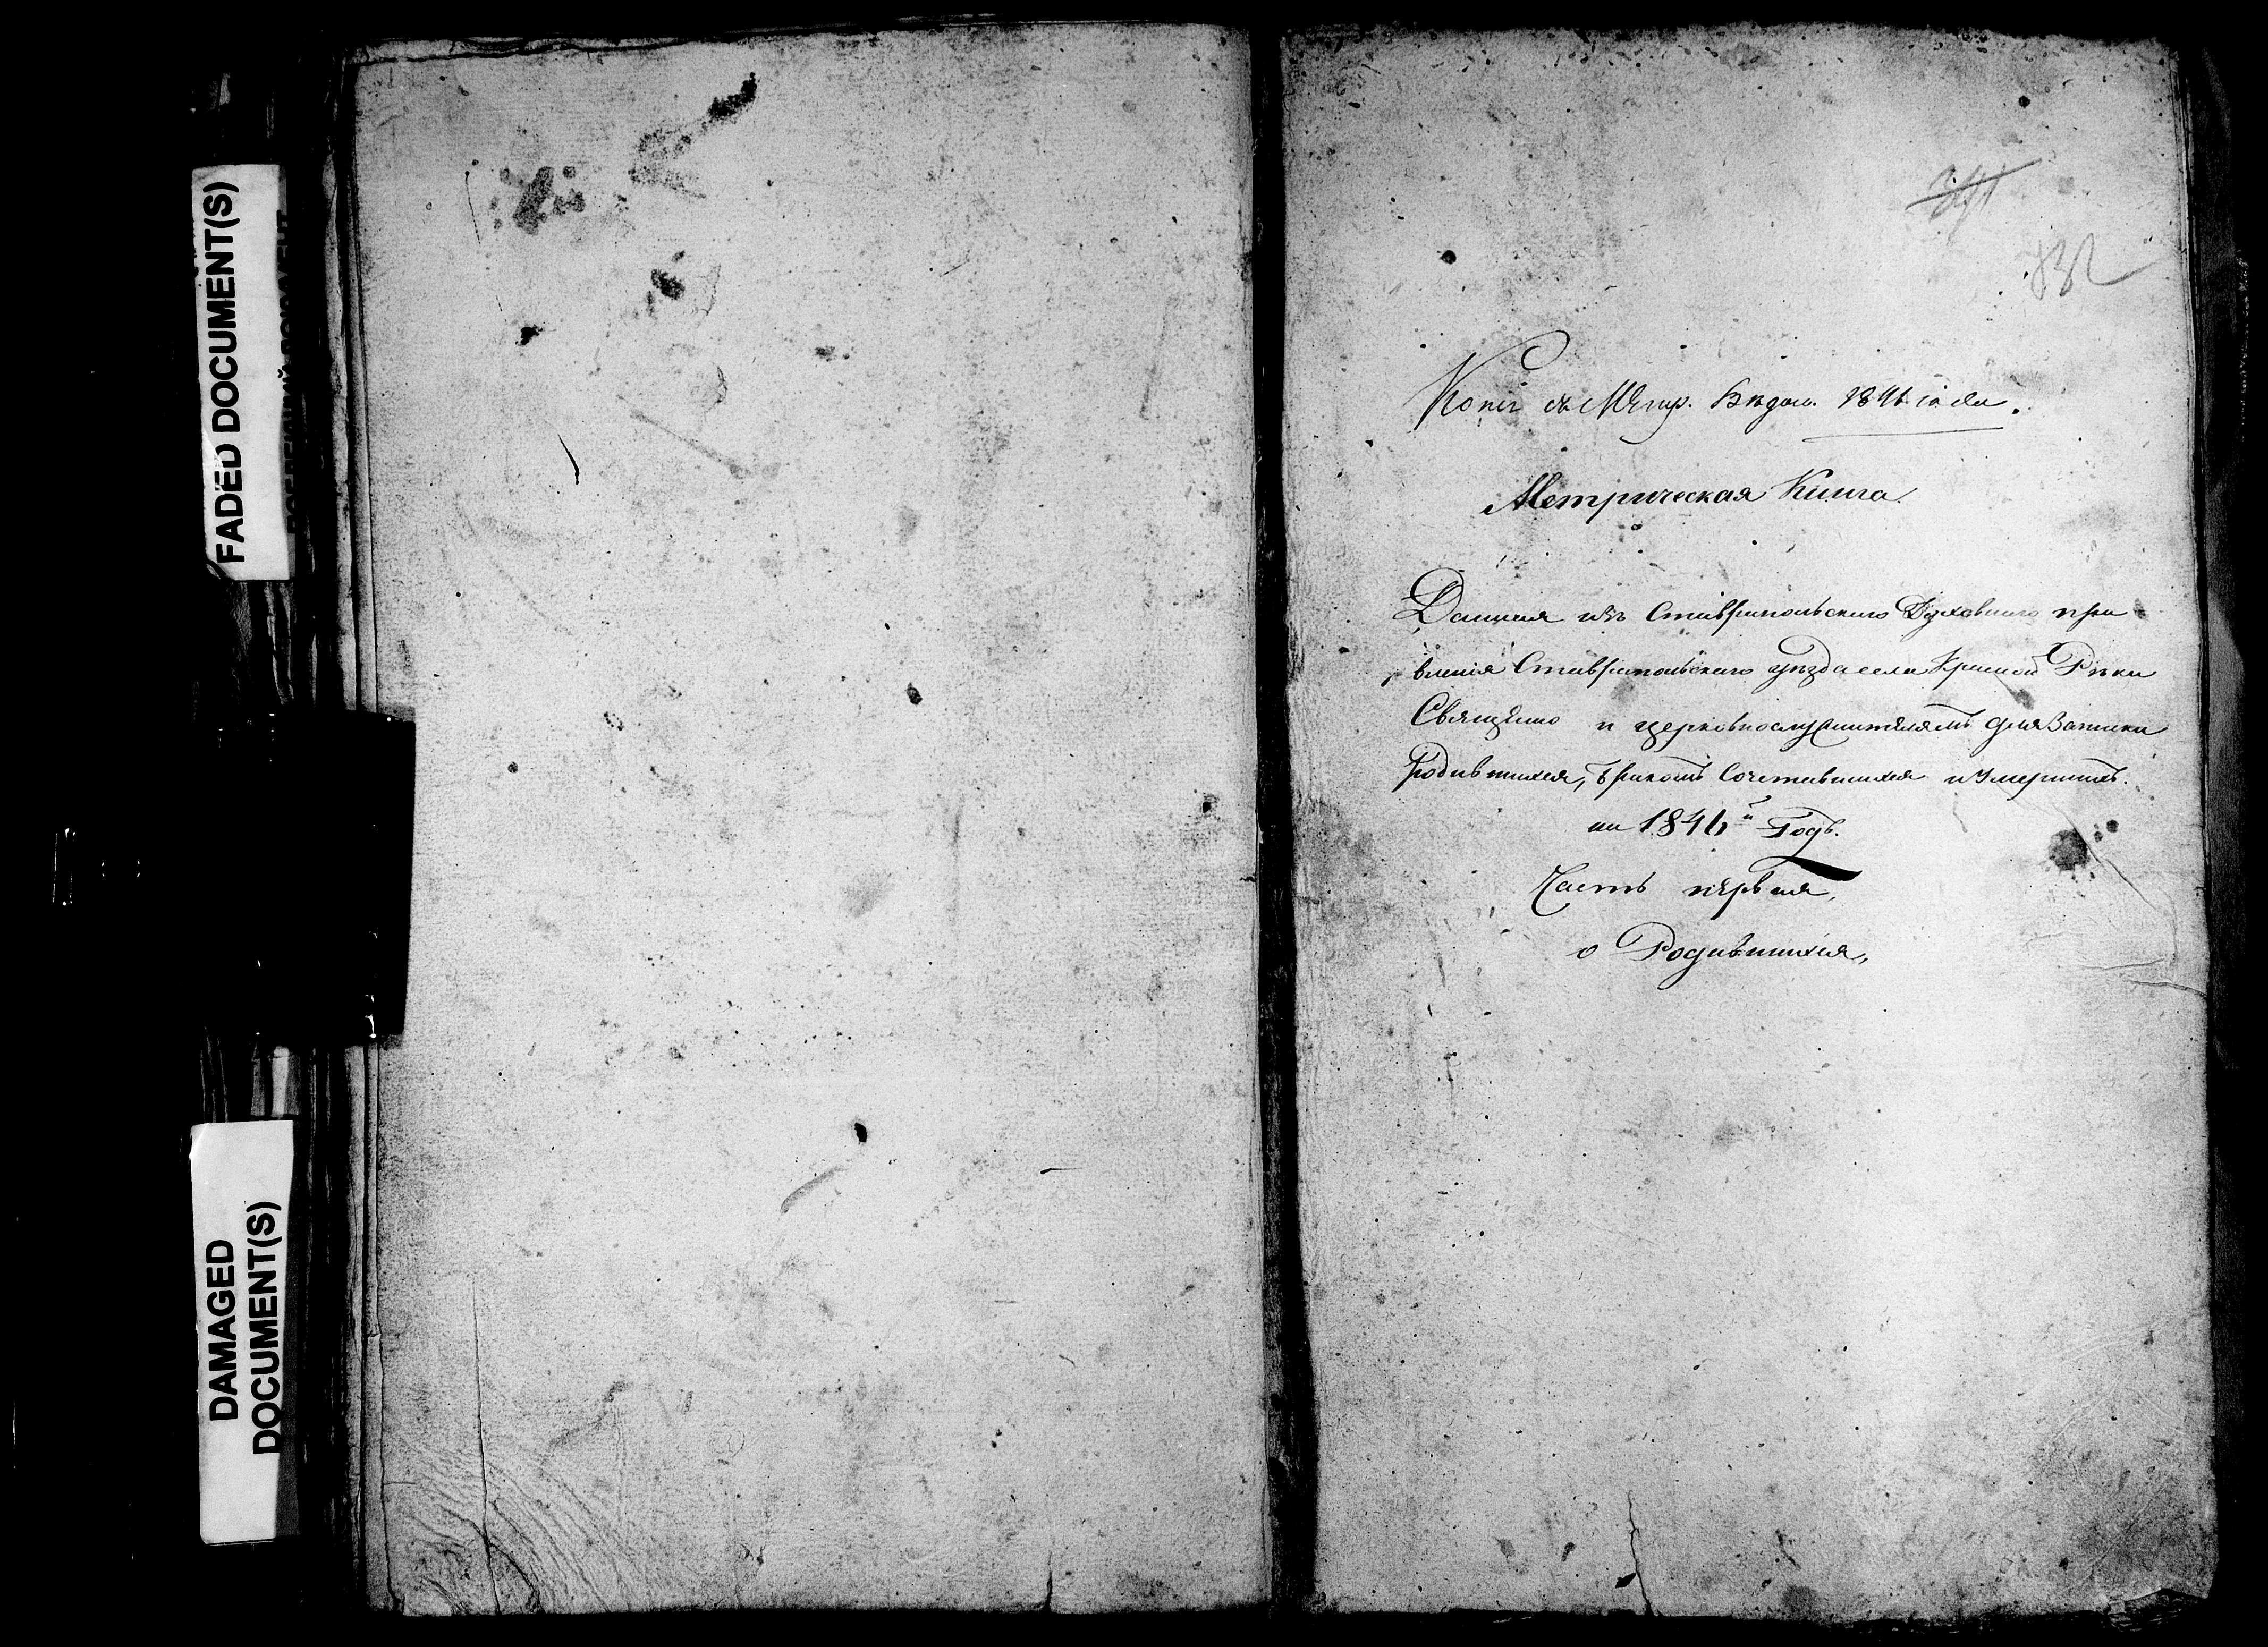 FADED DOCUMENT(S)
DAMAGED
DOCUMENT(S)
132
Копія съ Метр. Вѣдом. 1846 года.
Метрическая Книга.
Данная изъ Ставропольскаго Духовнаго пра
вленія Ставропольскаго уѣзда села Рѣки
Священно и церковнослужителямъ для Записки
Родившихся, бракомъ Сочетавшихся и Умершихъ.
на 1846й Годъ.
Часть первая,
о Родившихся,